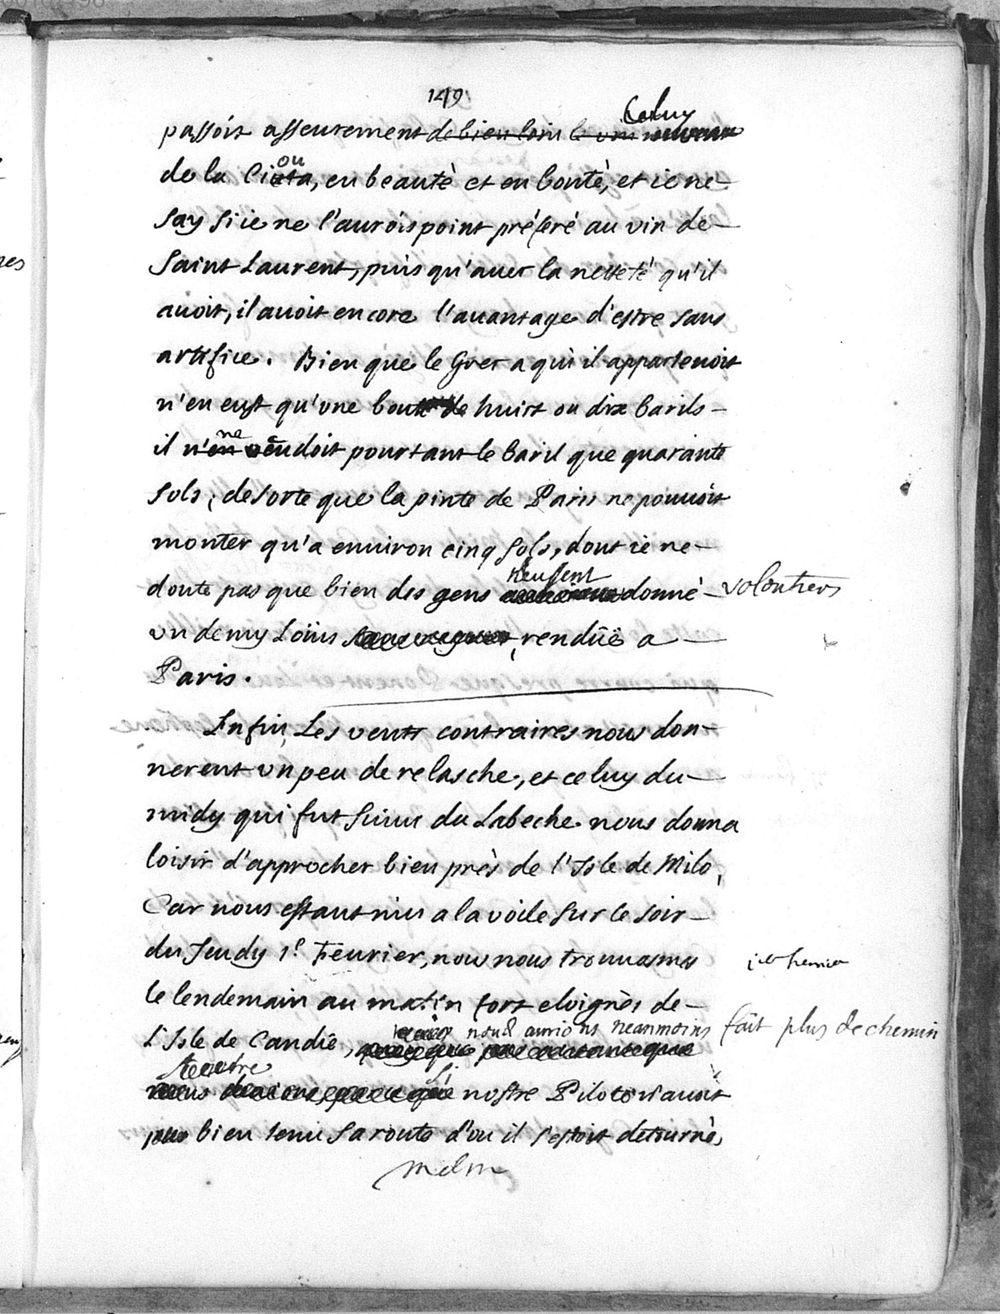 149
Celuy
passoit asseurement de bien loin le vin
de la Ciota, en beauté et en bonté, et ie ne
ou
say si ie ne l'aurois point préferé au vin de
Saint Laurent, puis qu'auec la netteté qu'il
auoit, il auoit encore l'auantage d'estre sans
artifice. Bien que le Grec a qui il appartenoit
n'en eust qu'une de huict ou dix barils
ne
il n'en vendoit pourtant le baril que quarante
sols, de sorte que la pinte de Paris ne pouuoit
monter qu'a enuiron cinq sols, dont ie ne
n'eussent
doute pas que bien des gens donné volontiers
un demy Loüis rendüe a
Paris.
Enfin Les vents contraires nous don-
nerent un peu de relasche, et celuy du
midy qui fut suiui du Labeche nous donna
loisir d'approcher bien près de l'Isle de Milo,
Car nous estant mis a la voile sur le soir
du Jeudy 1r Feurier, nous nous trouuasmes
le lendemain au matin fort eloignés de
nous aurions neanmoins fait plus de chemin
L'Isle de Candie,
si
nostre Pilote n'auoit
bien tenu sa route d'ou il s'estoit detourné,